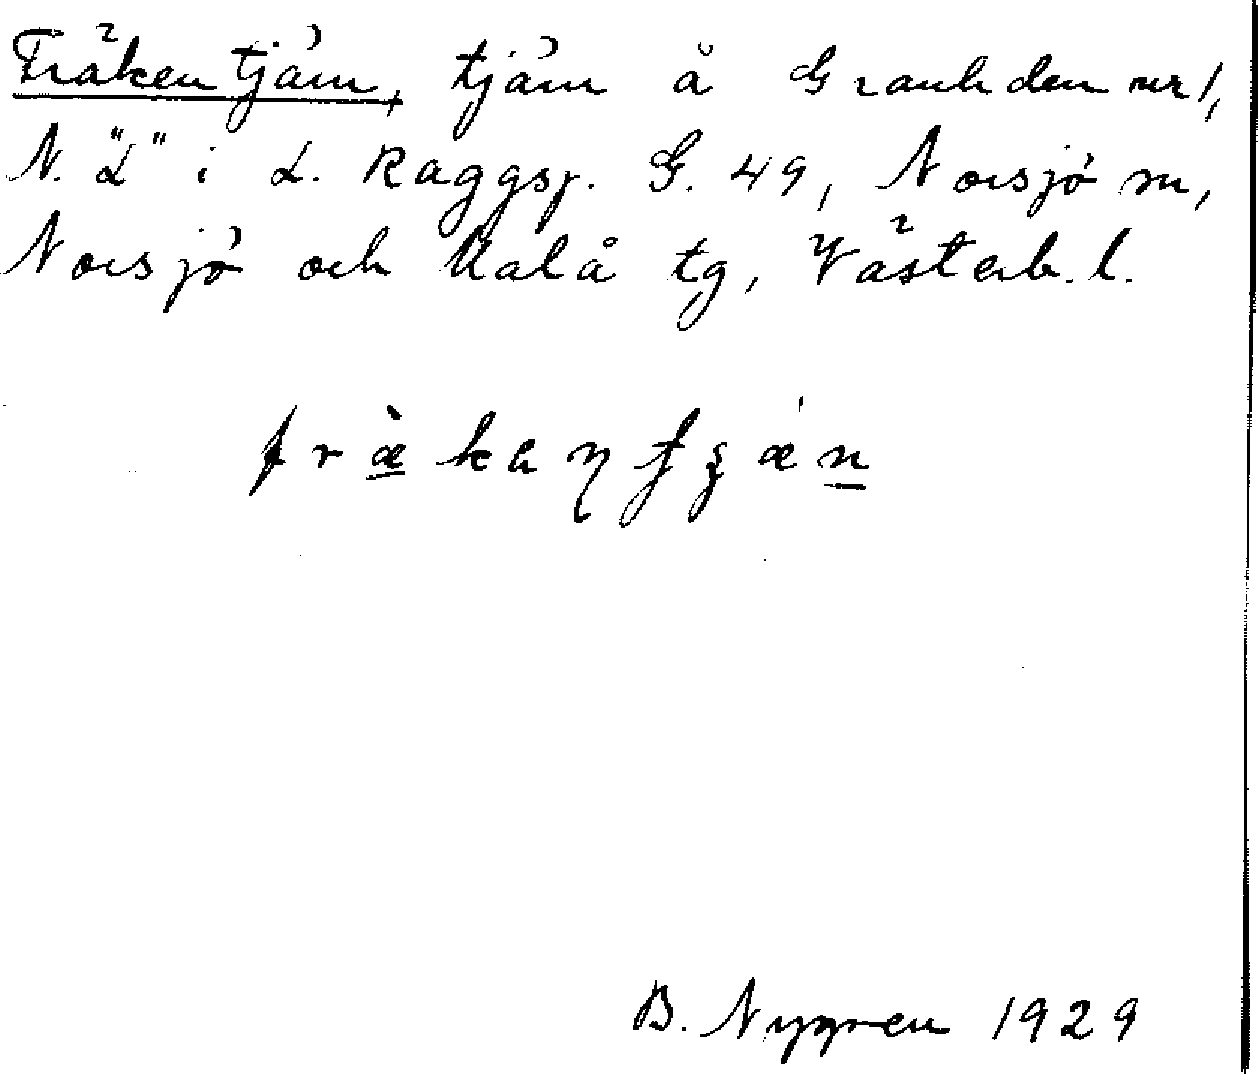 Fräkentjärn, tjärn å Granliden nr 1,
N. "L" i L. Raggsj. G. 49, Norsjö sn,
Norsjö och Malå tg, Västerb. l.
B. Nygren 1929